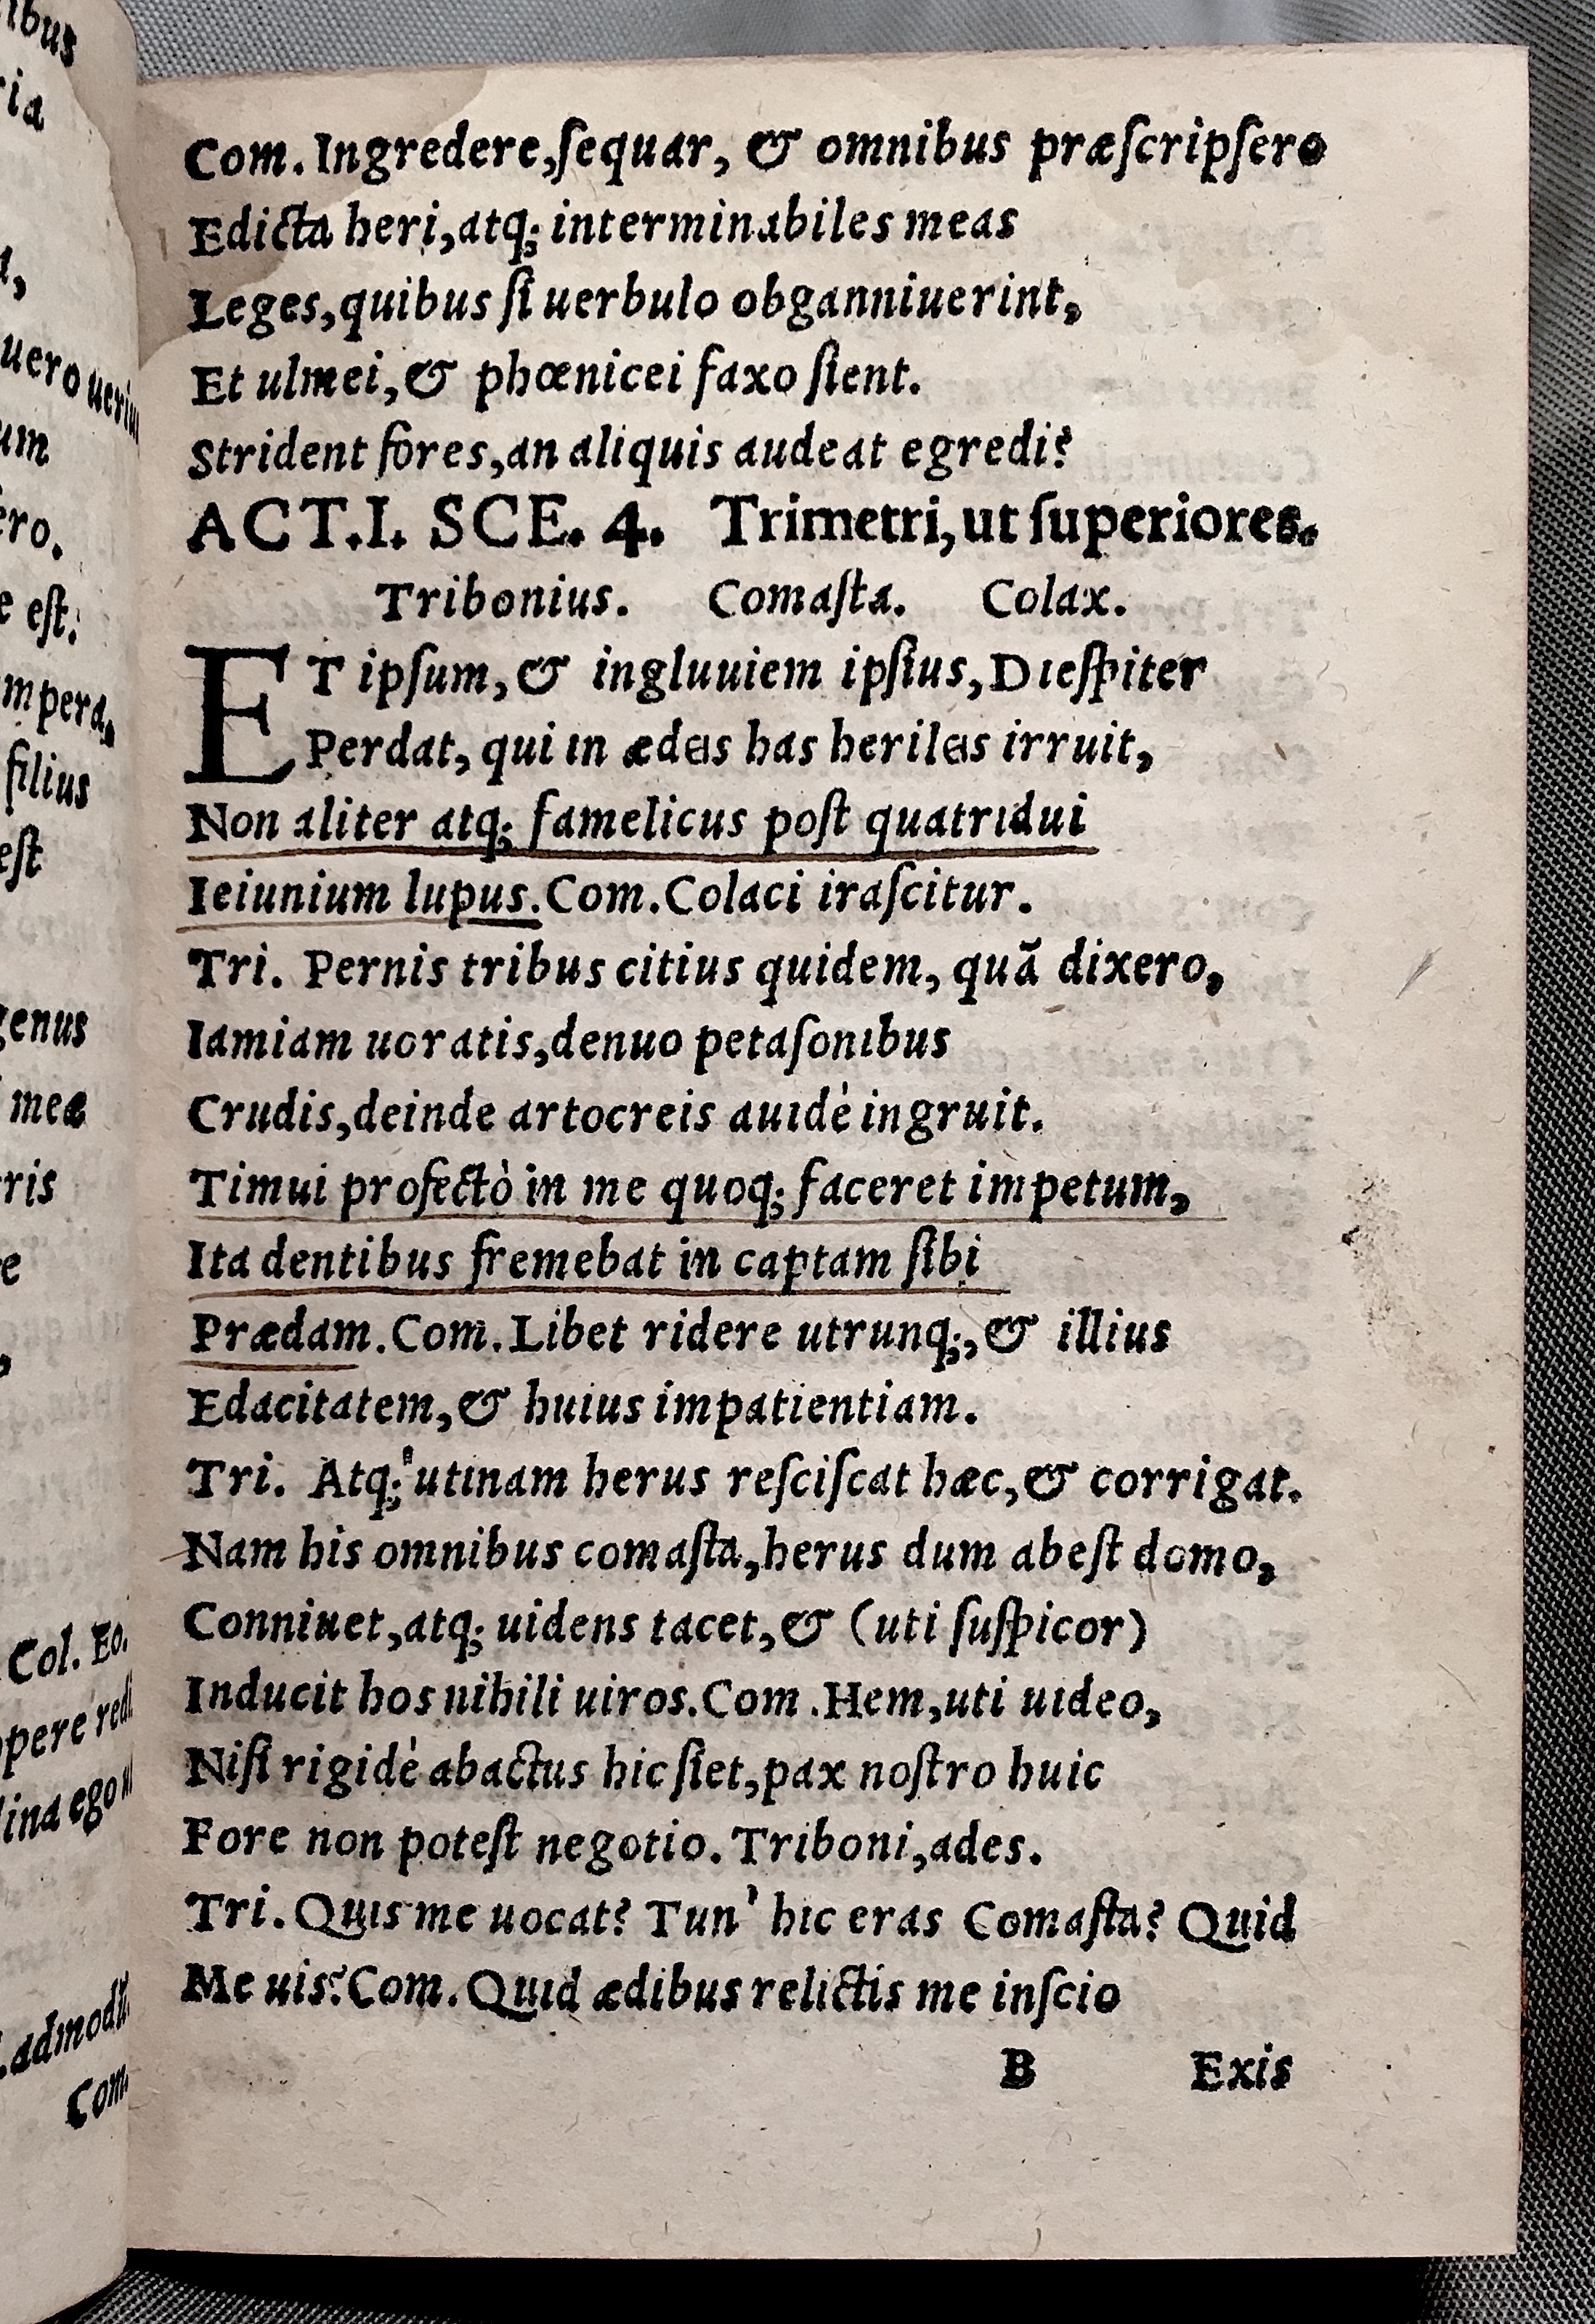 ibus
ria
uero
um
ero.
e eſt.
m perd
filius
eſt
genus
meæ
ris
e
Col. Eo.
pere redi
lina ego
admodũ
Com.
Com. Ingredere, ſequar, & omnibus præſcripſero
Edicta heri, atq; interminabiles meas
Leges, quibus ſi uerbulo obganniuerint,
Et ulmei, & phœnicei faxo ſient.
Strident fores, an aliquis audeat egredi?
ACT. I. SCE. 4. Trimetri, ut ſuperiores.
Tribonius. Comaſta. Colax.
ET ipſum, & ingluuiem ipſius, Dieſpiter
Perdat, qui in ædeis has herileis irruit,
Non aliter atq; famelicus poſt quatridui
Ieiunium lupus. Com. Colaci iraſcitur.
Tri. Pernis tribus citius quidem, quã dixero,
Iamiam uoratis, denuo petaſonibus
Crudis, deinde artocreis auidè ingruit.
Timui profectò in me quoq; faceret impetum,
Ita dentibus fremebat in captam ſibi
Prædam. Com. Libet ridere utrunq;, & illius
Edacitatem, & huius impatientiam.
Tri. Atq; utinam herus reſciſcat hæc, & corrigat.
Nam his omnibus comaſta, herus dum abeſt domo,
Conniuet, atq; uidens tacet, & (uti ſuſpicor)
Inducit hos nihili uiros. Com. Hem, uti uideo,
Niſi rigidè abactus hic ſiet, pax noſtro huic
Fore non poteſt negotio. Triboni, ades.
Tri. Quis me uocat? Tun' hic eras Comaſta? Quid
Me uis? Com. Quid ædibus relictis me inſcio
B Exis